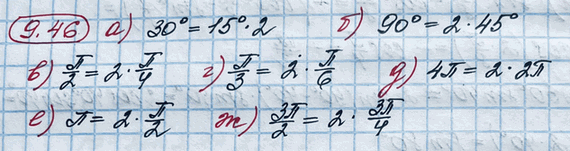 9.46 а) 30° = 15° · 2 б) 90° = 2 · 45°
в) π/2 = 2 · π/4 г) π/3 = 2 · π/6 д) 4π = 2 · 2π
е) π = 2 · π/2 ж) 3π/2 = 2 · 3π/4